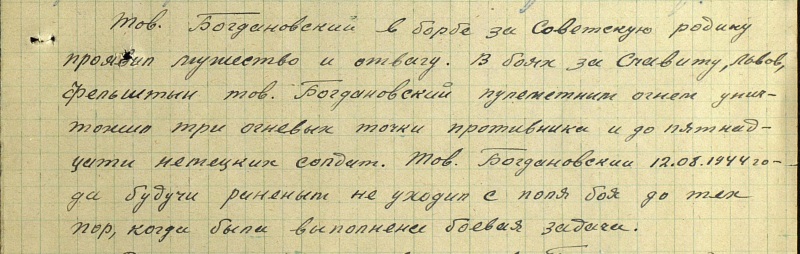 Тов. Богдановский в борбе за Советскую родину
проявил мужество и отвагу. В боях за Славиту, Львов,
Фельштын тов. Богдановский пулеметным огнем унич-
тожил три огневых точки противника и до пятнад-
цати немецких солдат. Тов. Богдановский 12.08.1944 го-
да будучи раненым не уходил с поля боя до тех
пор, когда была выполнена боевая задача.